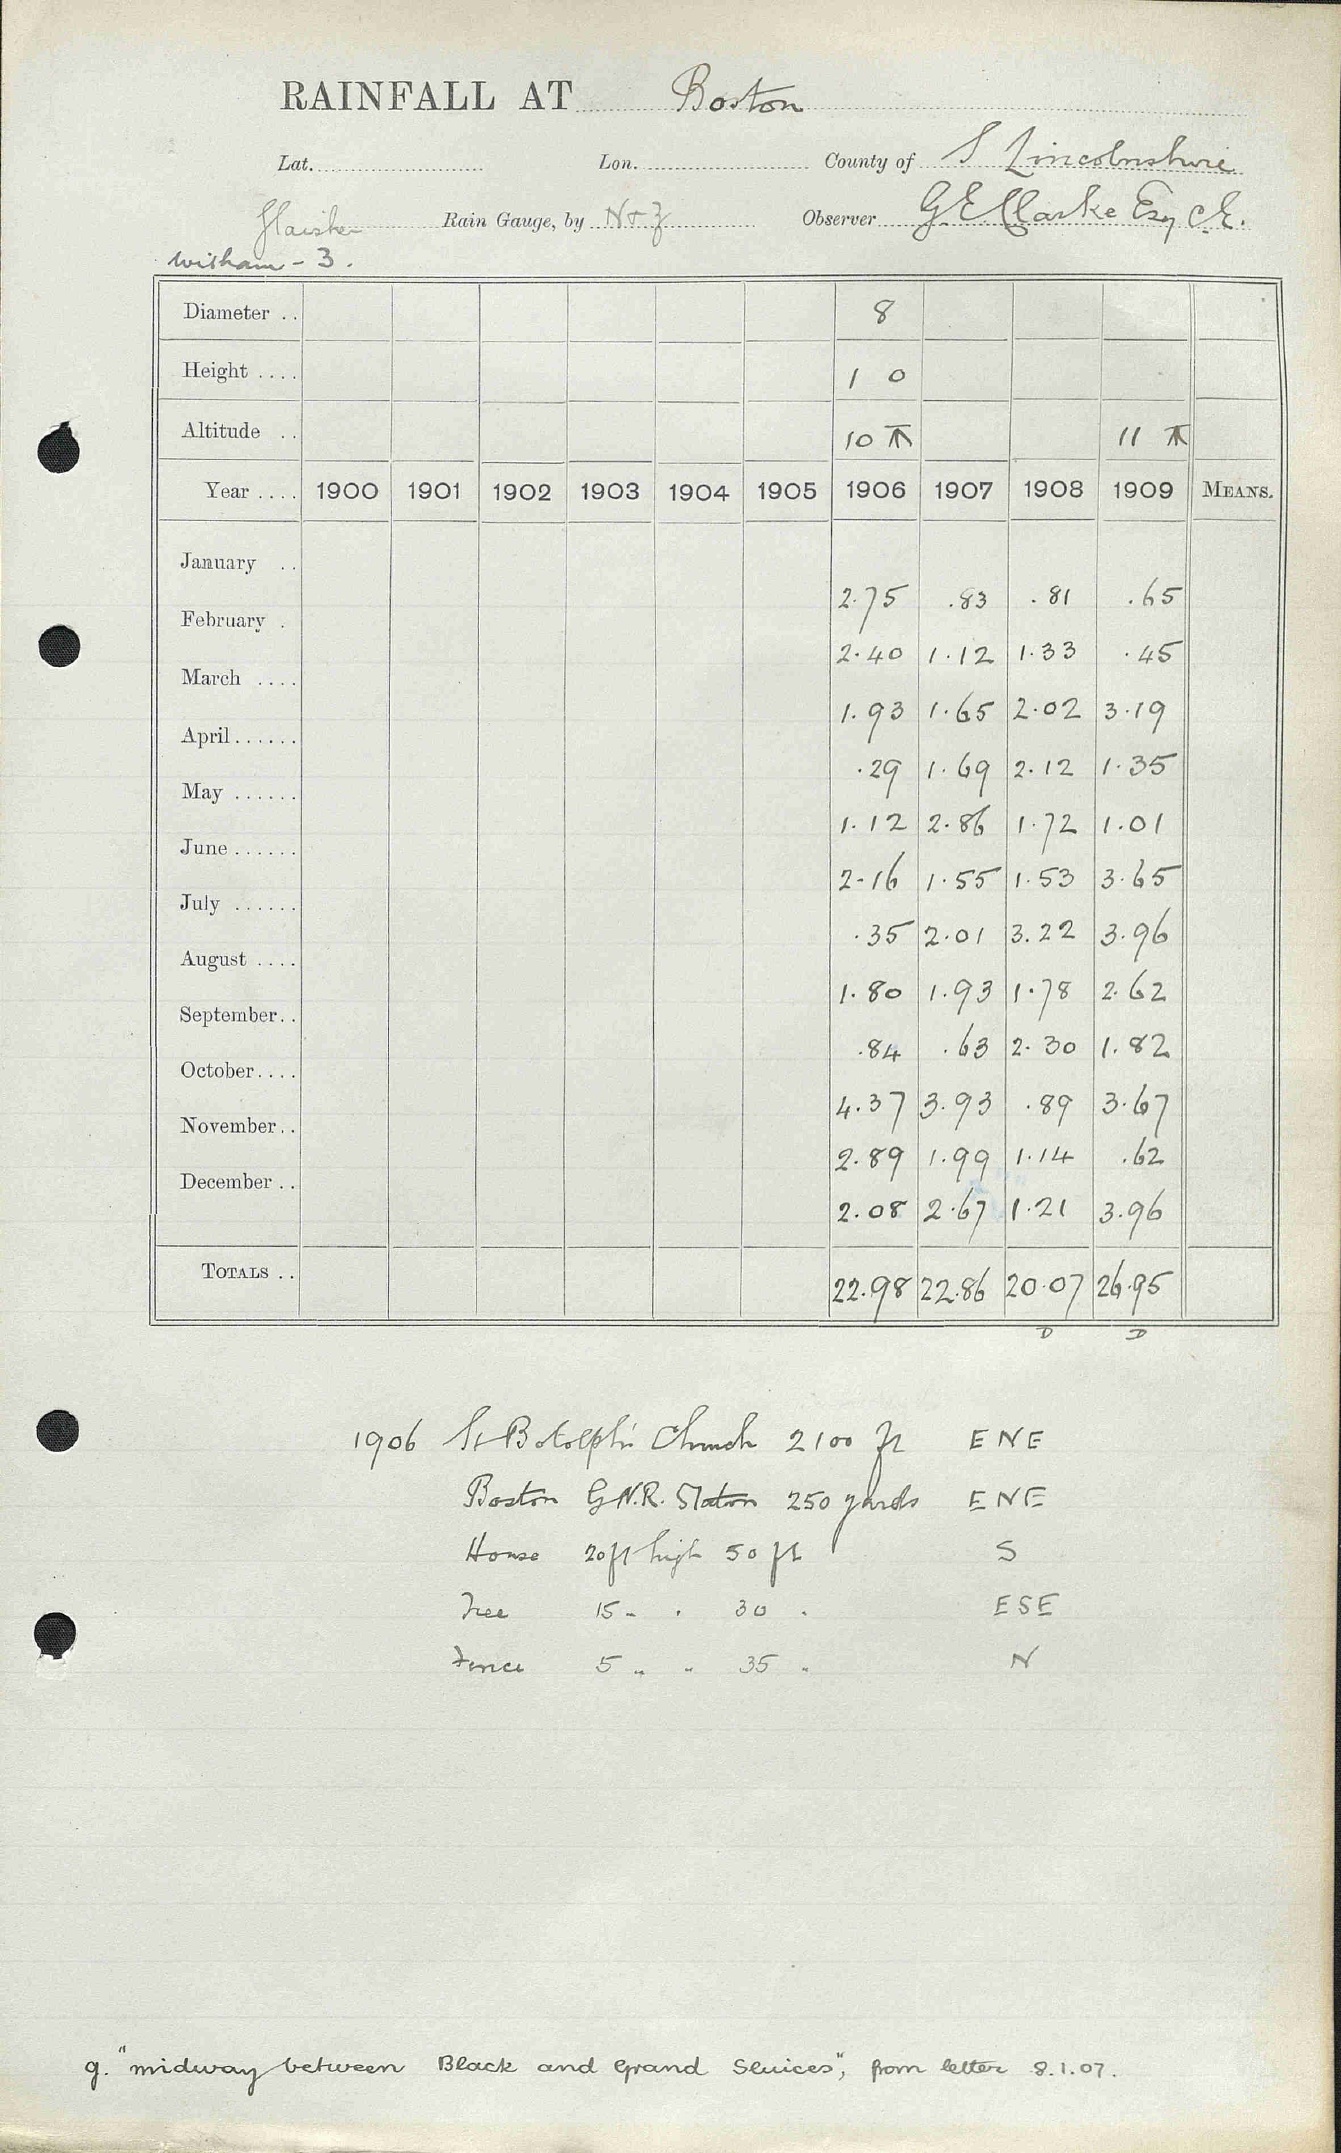 RAINFALL AT Boston
Lat. Lon. County of S Lincolnshire
Glaisher Rain Gauge, by N & Z Observer G E Clarke Esq C.E.
Witham - 3.
Diameter .. 8
Height .... 1 0
Altitude .. 10 11
Year .... 1900 1901 1902 1903 1904 1905 1906 1907 1908 1909 MEANS.
January .. 2.75 .83 .81 .65
February . 2.40 1.12 1.33 .45
March .... 1.93 1.65 2.02 3.19
April...... .29 1.69 2.12 1.35
May ...... 1.12 2.86 1.72 1.01
June ...... 2.16 1.55 1.53 3.65
July ...... .35 2.01 3.22 3.96
August .... 1.80 1.93 1.78 2.62
September.. .84 .63 2.30 1.82
October.... 4.37 3.93 .89 3.67
November.. 2.89 1.99 1.14 .62
December .. 2.08 2.67 1.21 3.96
TOTALS .. 22.98 22.86 20.07 26.95
D D
1906 St Botolph's Church 2100 ft ENE
Boston G.N.R. Station 250 yards ENE
House 20ft high 50 ft S
Tree 15 " " 30 " ESE
Fence 5 " " 35 " N
g. "midway between Black and Grand Sluices", from letter 8.1.07.